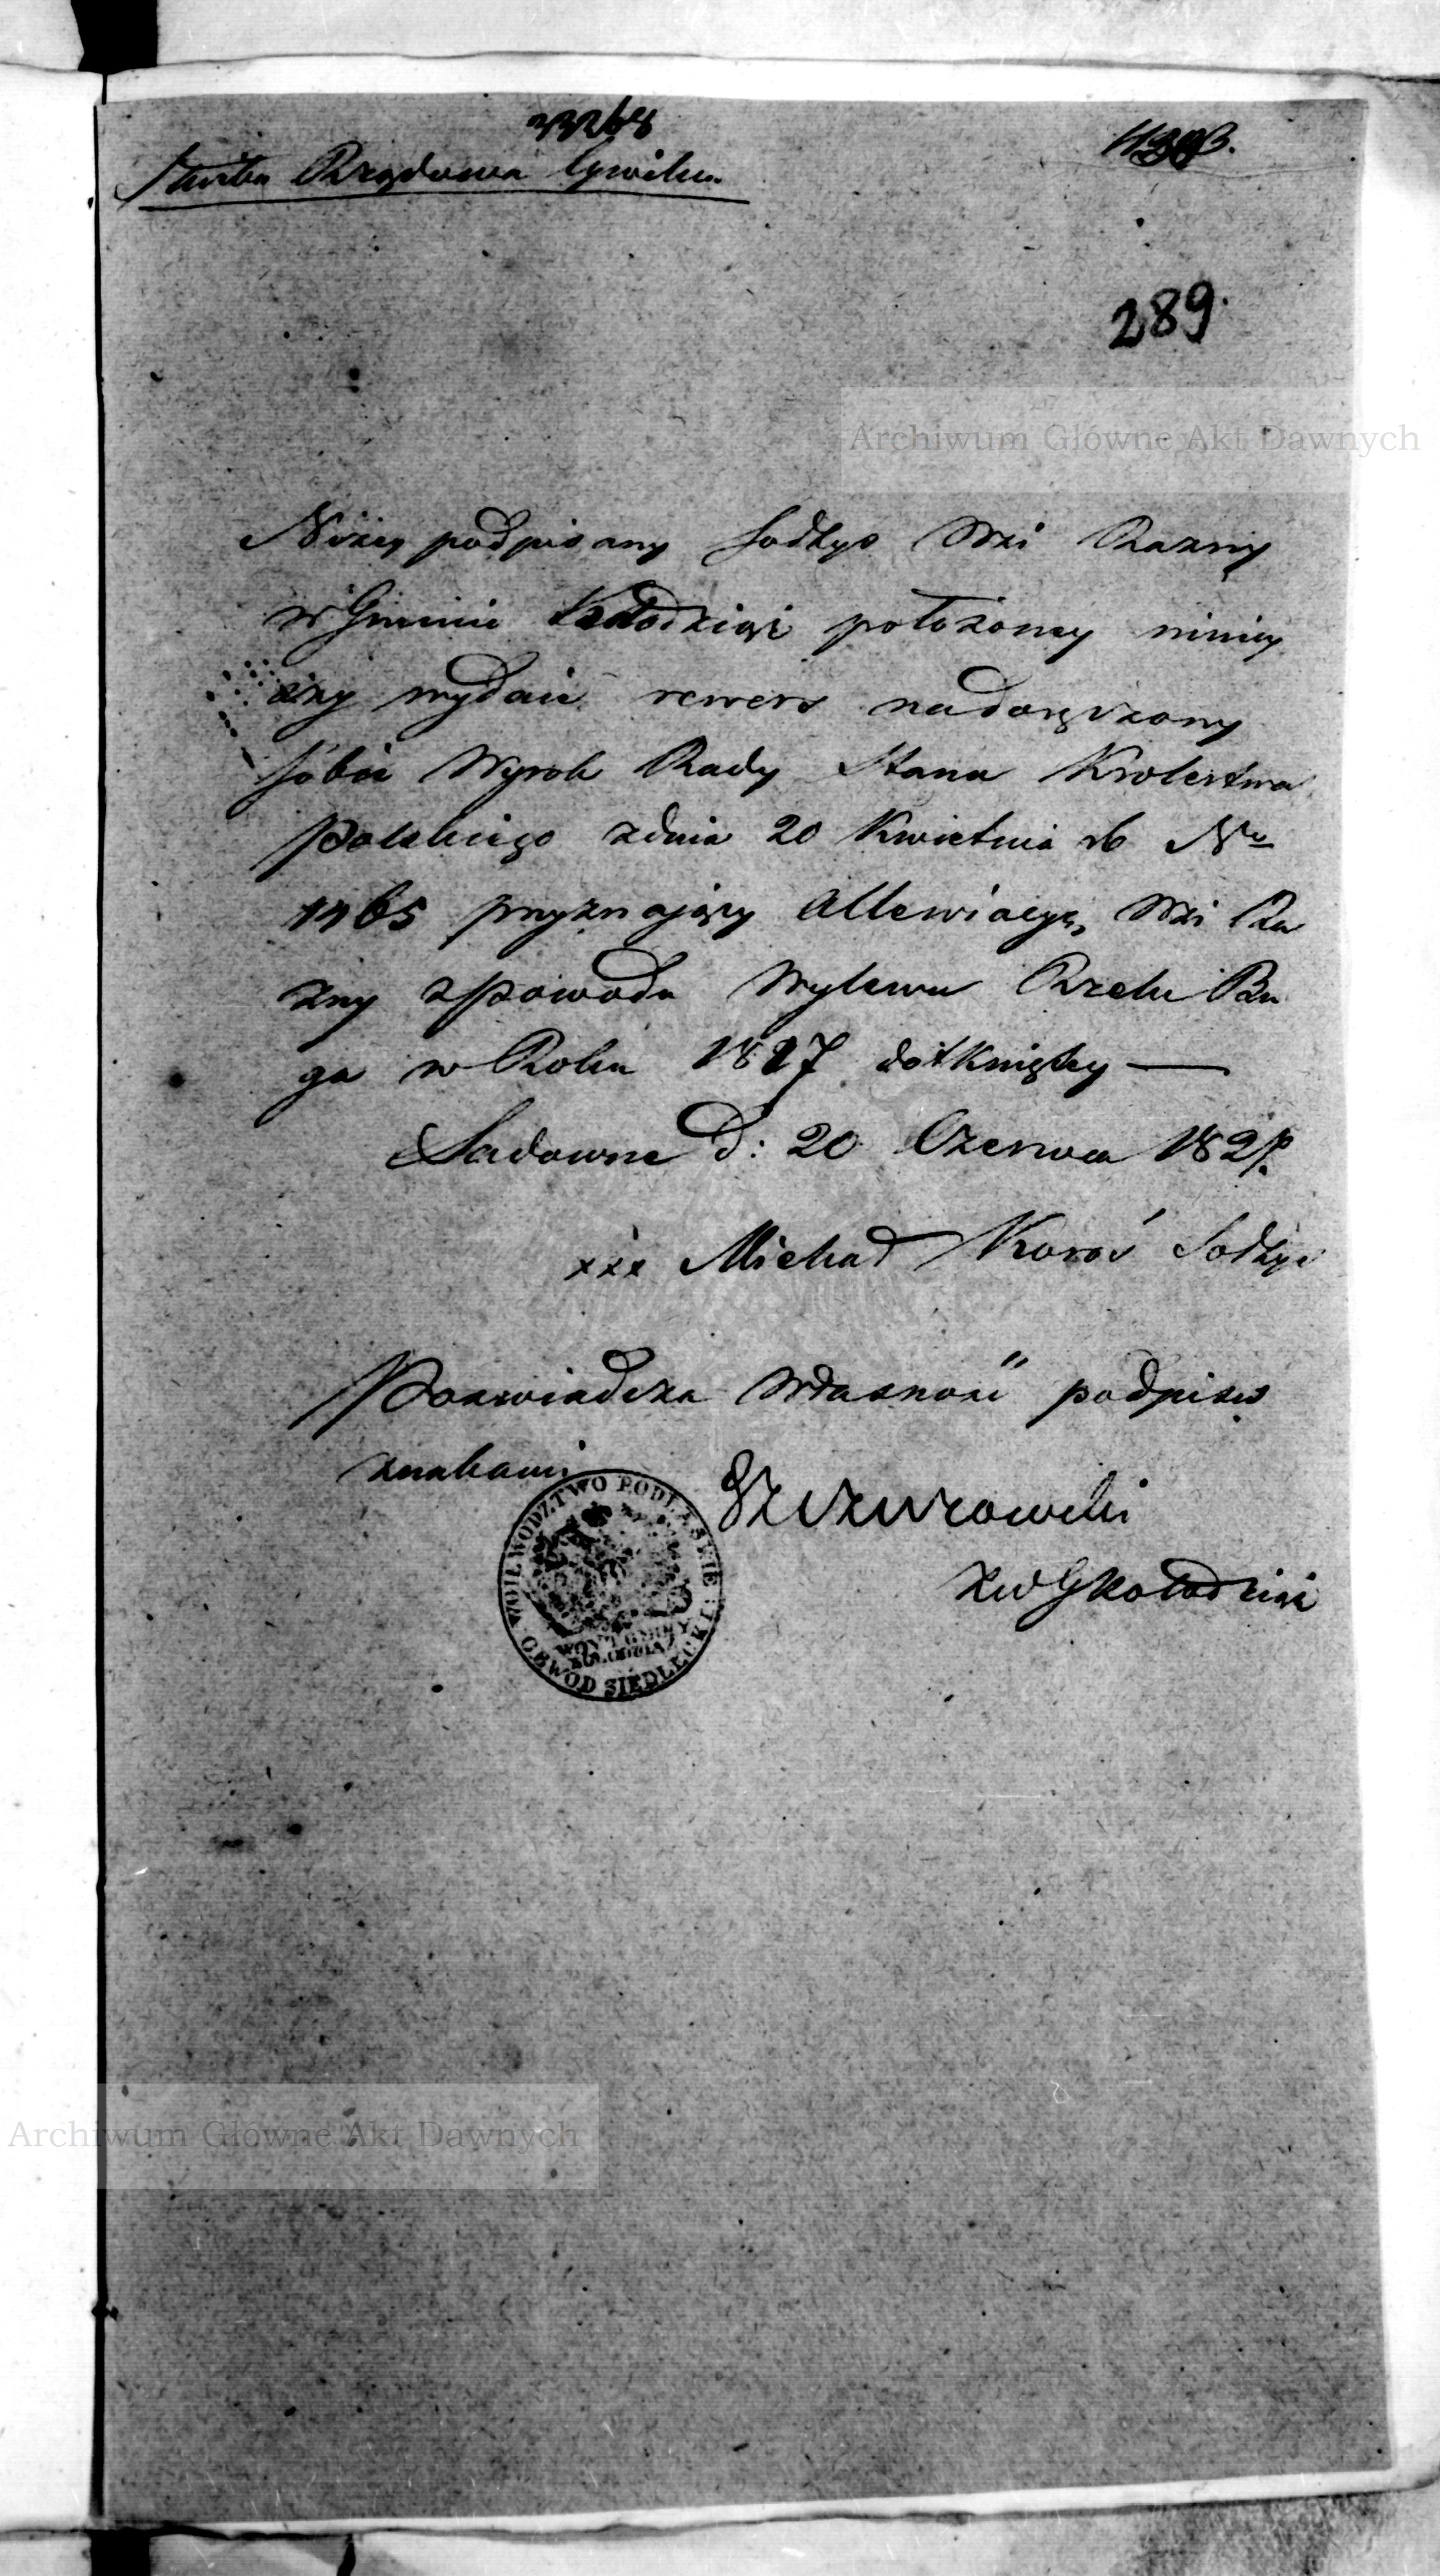 33268
4393.
Służba Rządowa Cywilna
289.
Archiwum Główne Akt Dawnych
Niżey podpisany Sołtys Wsi Razny
w Gminie Kołodziąż położoney niniey
szy wydaie rewers na doręczony
sobie Wyrok Rady Stanu Krolestwa
Polskiego z dnia 20 Kwietnia rb Nro
1465 przyznaiący Allewiacyę Wsi Ra
zny z powodu Wylewu Rzeki Bu
ga w Roku 1827 dotknięty —
Sadowne d: 20 Czerwca 182
xxx Michał Koroś Sołtys
Poswiadcza Własność podpisu
znakami
Szczurowski
ZWG Kołodziąż
WOIEWODZTWO PODLASKIE
WOYT GMINY
KOŁODZIĄŻ
OBWOD SIEDLECKI
Archiwum Główne Akt Dawnych